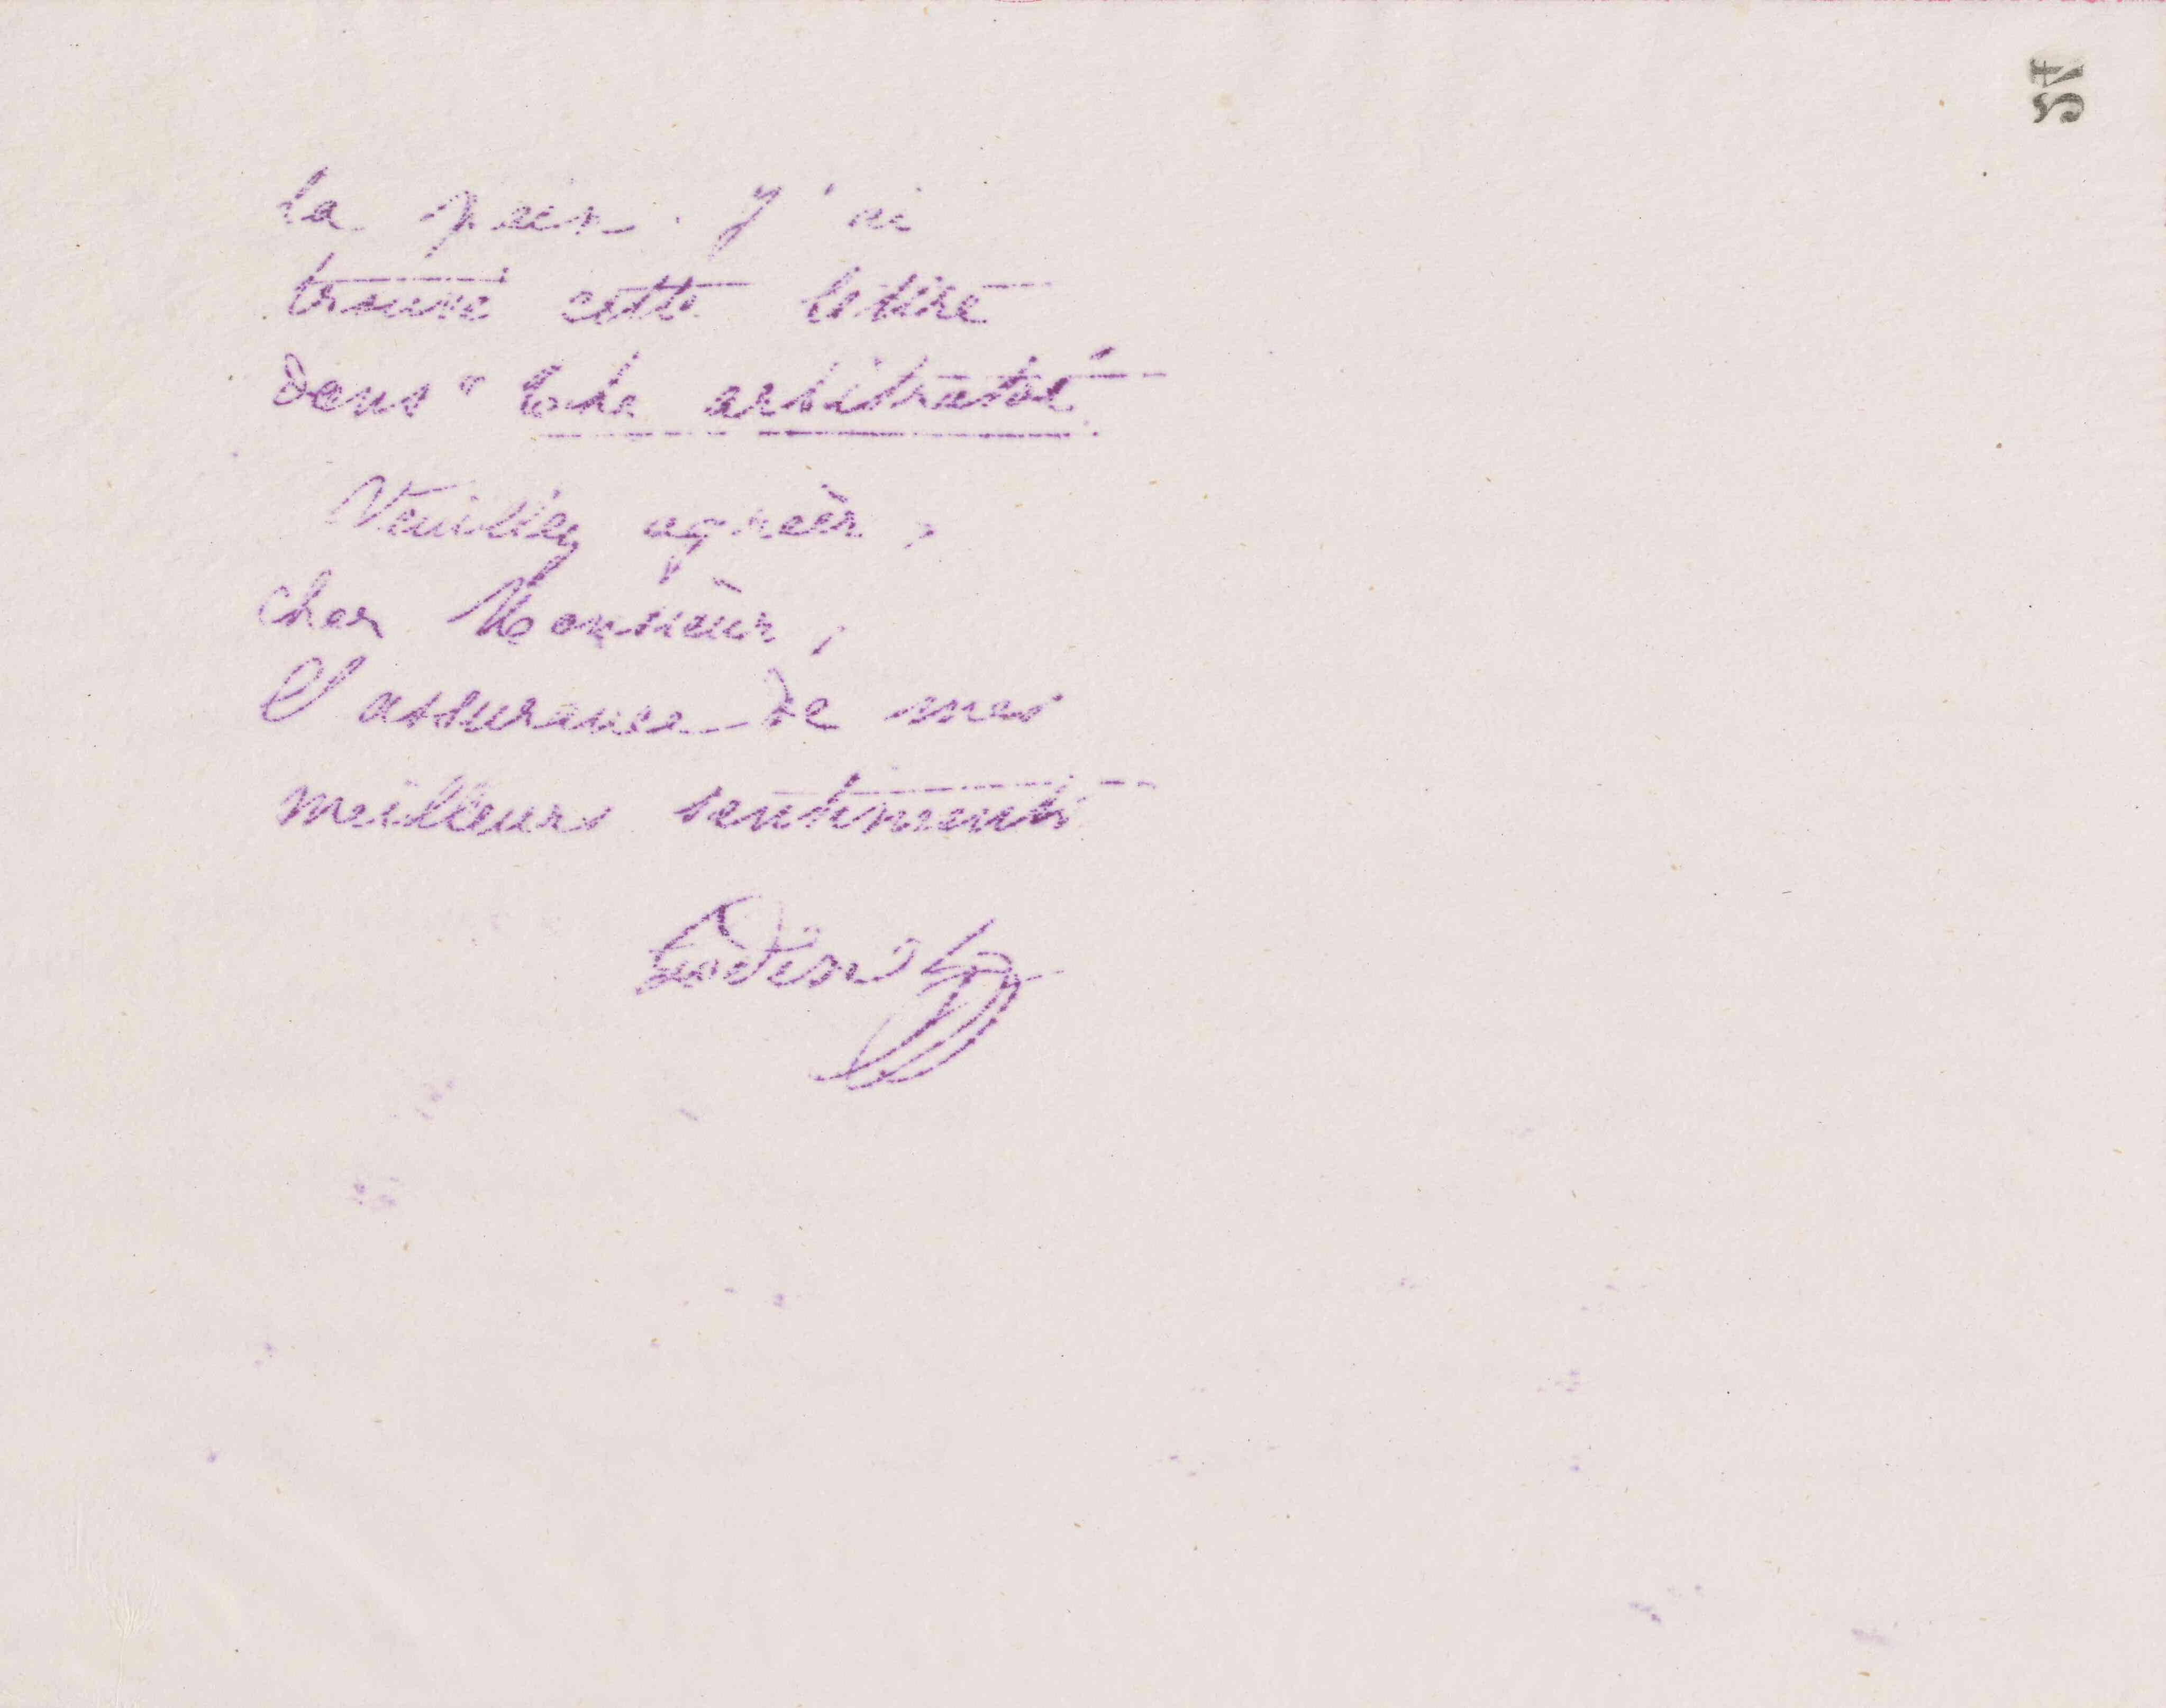 57
la paix. J'ai
trouvé cette lettre
dans "The arbitrator"
Veuillez agréer,
cher Monsieur,
l'assurance de mes
meilleurs sentiments
Godin